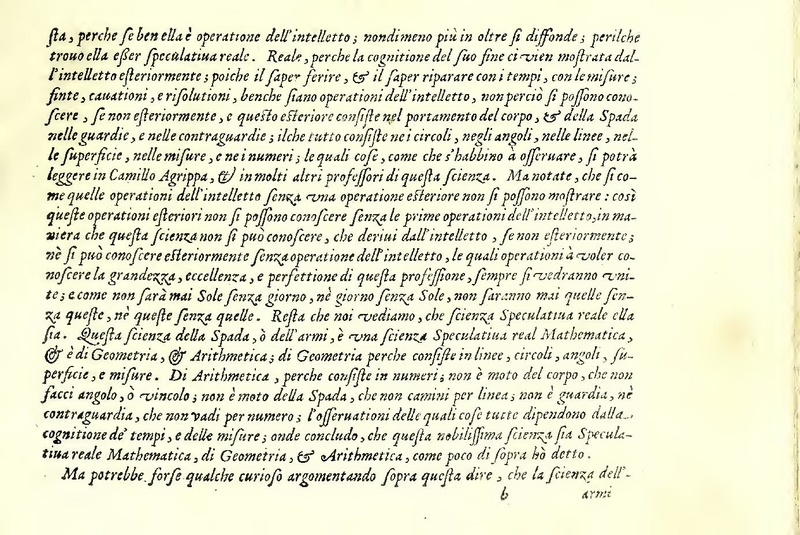 ſta, perche ſe ben ella è operatione dell'intelletto; nondimeno più in oltre ſi diffonde; perilche
trouo ella eßer ſpeculatiua reale. Reale, perche la cognitione del ſuo fine ci vien moſtrata dal-
l'intelletto eſteriormente; poiche il ſaper ferire, & il ſaper riparare con i tempi, con le miſure;
finte, cauationi, e riſolutioni, benche ſiano operationi dell'intelletto, non perciò ſi poſſono cono-
ſcere, ſe non eſteriormente, e queſto eſteriore conſiſte nel portamento del corpo, & della Spada
nelle guardie, e nelle contraguardie; ilche tutto conſiſte ne i circoli, negli angoli, nelle linee, nel-
le ſuperficie, nelle miſure, e ne i numeri; le quali coſe, come che s'habbino à oſſeruare, ſi potrà
leggere in Camillo Agrippa, & in molti altri profeſſori di queſta ſcienza. Ma notate, che ſi co-
me quelle operationi dell'intelletto ſenza vna operatione eſteriore non ſi poſſono moſtrare: così
queſte operationi eſteriori non ſi poſſono conoſcere ſenza le prime operationi dell'intelletto, in ma-
niera che queſta ſcienza non ſi può conoſcere, che deriui dall'intelletto, ſe non eſteriormente;
nè ſi può conoſcere eſteriormente ſenza operatione dell'intelletto, le quali operationi à voler co-
noſcere la grandezza, eccellenza, e perfettione di queſta profeſſione, ſempre ſi vedranno vni-
te; e come non ſarà mai Sole ſenza giorno, nè giorno ſenza Sole, non ſaranno mai quelle ſen-
za queſte, nè queſte ſenza quelle. Reſta che noi vediamo, che ſcienza Speculatiua reale ella
ſia. Queſta ſcienza della Spada, ò dell'armi, è vna ſcienza Speculatiua real Mathematica,
& è di Geometria, & Arithmetica; di Geometria perche conſiſte in linee, circoli, angoli, ſu-
perficie, e miſure. Di Arithmetica, perche conſiſte in numeri; non è moto del corpo, che non
facci angolo, ò vincolo; non è moto della Spada, che non camini per linea; non è guardia, nè
contraguardia, che non vadi per numero; l'oſſeruationi delle quali coſe tutte dipendono dalla
cognitione de' tempi, e delle miſure; onde concludo, che queſta nobiliſſima ſcienza ſia Specula-
tiua reale Mathematica, di Geometria, & Arithmetica, come poco di ſopra hò detto.
Ma potrebbe forſe qualche curioſo argomentando ſopra queſta dire, che la ſcienza dell'-
b armi